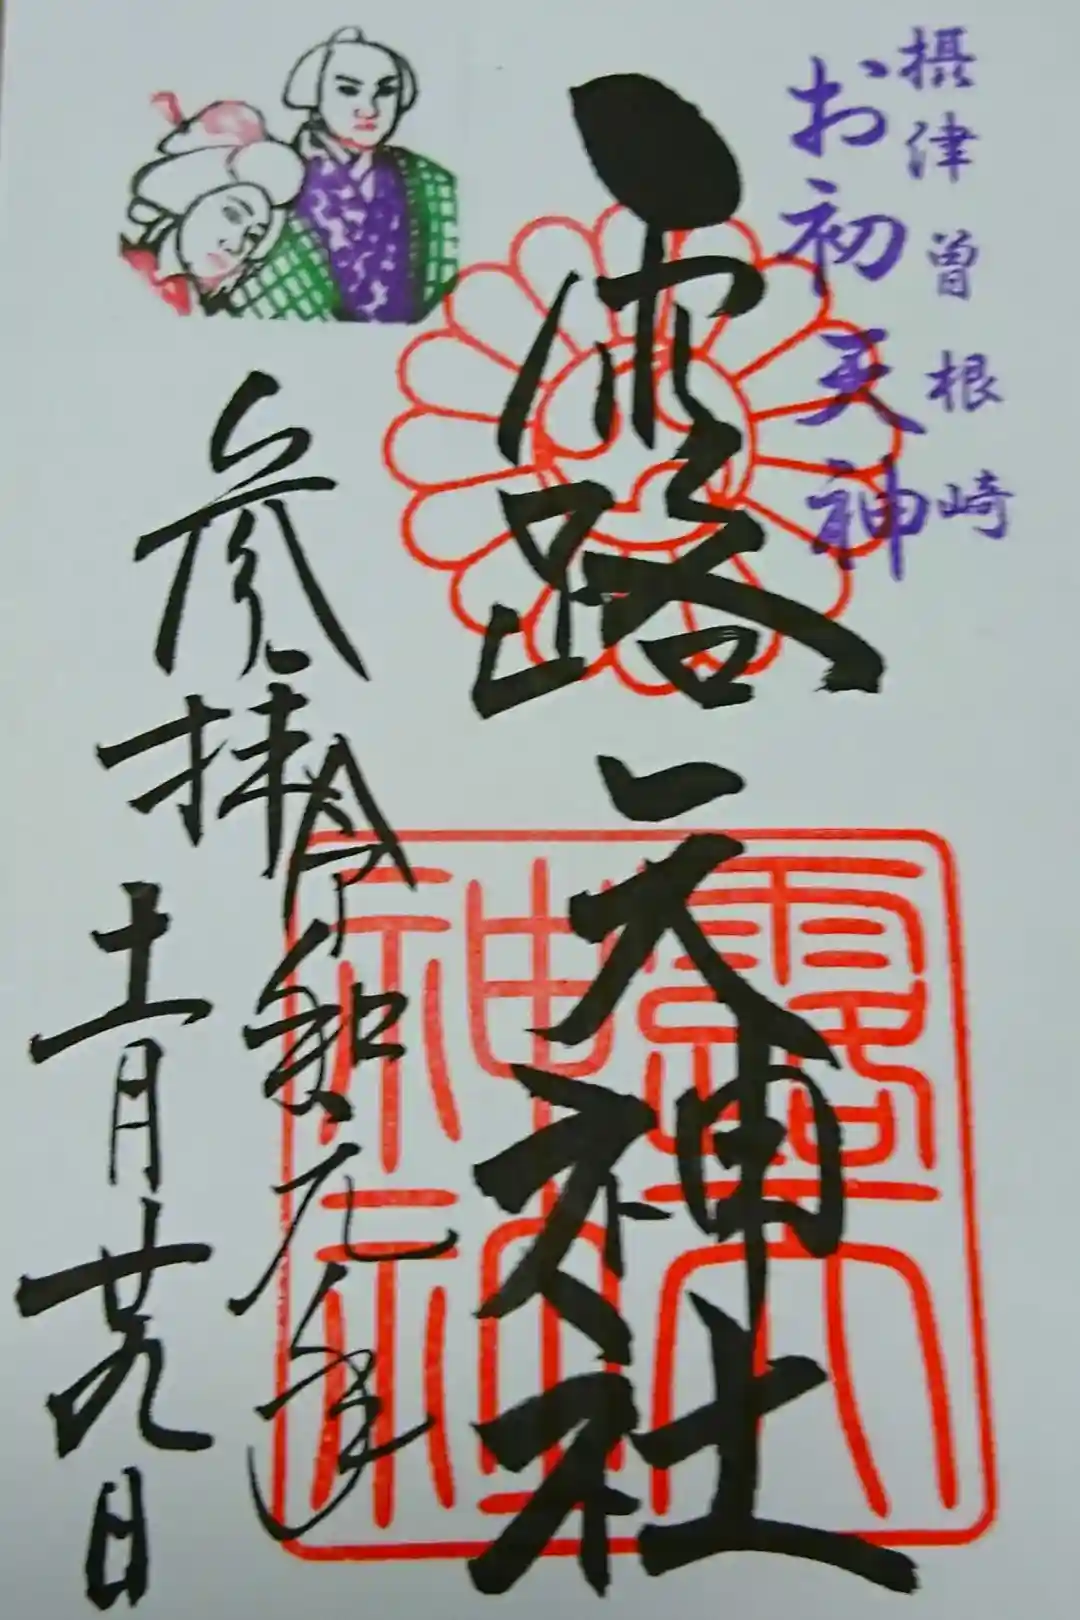 摂津曽根崎
お初天神
露天神社
露天
神
参拝
令和元年
十一月廿九日